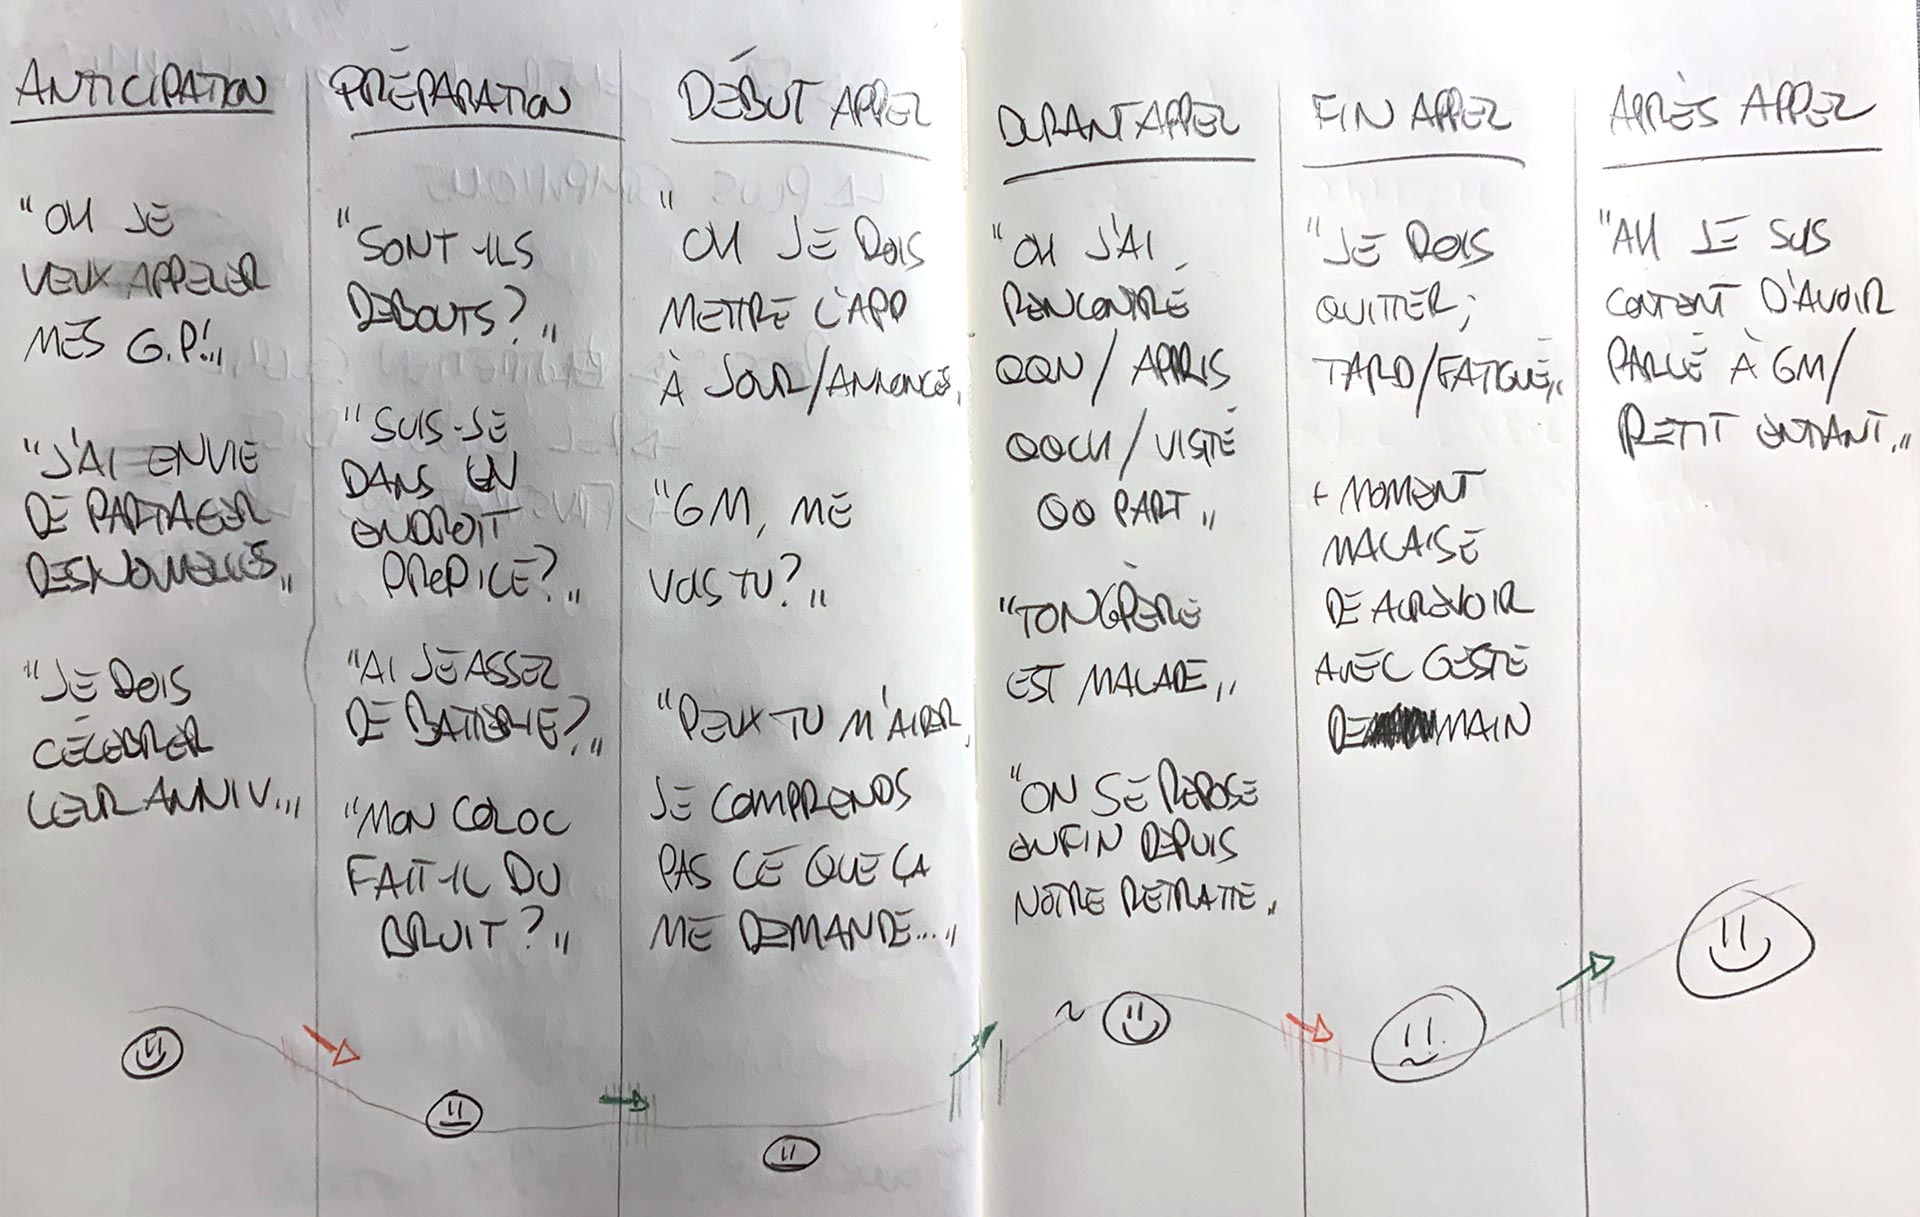 ANTICIPATION
"OH JE
VEUX APPELER
MES G.P!"
"J'AI ENVIE
DE PARTAGER
DES NOUVELLES"
"JE DOIS
CÉLÉBRER
LEUR ANNIV..."
PRÉPARATION
"SONT-ILS
DEBOUTS?"
"SUIS-JE
DANS UN
ENDROIT
PROPICE?"
"AI JE ASSEZ
DE BATTERIE?"
"MON COLOC
FAIT-IL DU
BRUIT?"
DÉBUT APPEL
"OH JE DOIS
METTRE L'APP
À JOUR/ANNONCES"
"GM, ME
VOIS TU?"
"PEUX TU M'AIDER,
JE COMPRENDS
PAS CE QUE ÇA
ME DEMANDE..."
DURANT APPEL
"OH J'AI
RENCONTRÉ
QQN / APPRIS
QQCH / VISITÉ
QQ PART"
"TON GPÈRE
EST MALADE"
"ON SE REPOSE
ENFIN DEPUIS
NOTRE RETRAITE"
FIN APPEL
"JE DOIS
QUITTER;
TARD/FATIGUÉ"
+ MOMENT
MALAISE
DE AUREVOIR
AVEC GESTE
DE MAIN
APRÈS APPEL
"AH JE SUIS
CONTENT D'AVOIR
PARLÉ À GM/
PETIT ENFANT"